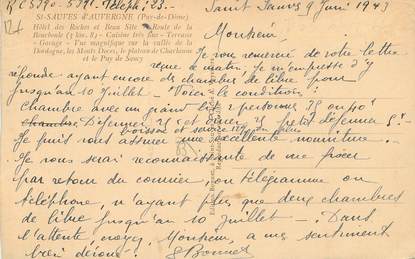 RC 5390-5391. Téléph: 23-
ST-SAUVES D'AUVERGNE (Puy-de-Dôme)
Hôtel des Roches et Beau Site - Route de la
Bourboule (3 km. 8) - Cuisine très fine - Terrasse
- Garage - Vue magnifique sur la vallée de la
Dordogne, les Monts Dores, le plateau de Charlannes
et le Puy de Sancy
Saint Sauves 9 Juin 1943
Monsieur
Je vous remercie de votre lettre
reçue ce matin. Je m'empresse d'y
réponde ayant encore des chambres de libre pour
jusqu'au 10 Juillet - Voici les conditions:
Chambre avec un grand lit 2 personnes
Déjeuner et diner petit déjeuner
boisson et service en plus
Je puis vous assurer une excellente nourriture.
Je vous serai reconnaissante de me fixer
par retour du courrier, ou télégramme ou
téléphone, n'ayant plus que deux chambres
de libre jusqu'au 10 Juillet - Dans
l'attente, croyez, Monsieur, à mes sentiments
bien dévoués.
Bonnet